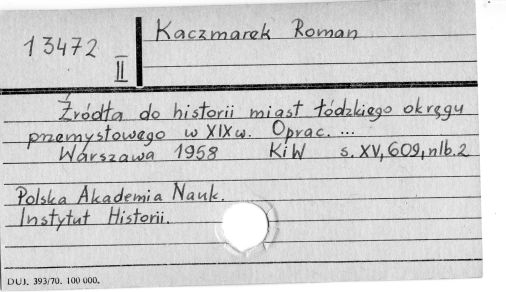 Kaczmarek Roman
13472
II
Źródła do historii miast łódzkiego okręgu
przemysłowego w XIX w. Oprac. ...
Warszawa 1958 KiW s. XV, 609, nlb. 2
Polska Akademia Nauk.
Instytut Historii.
DUJ. 393/70. 100 000.